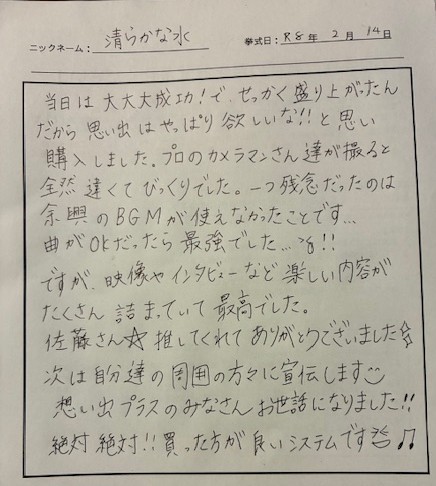 ニックネーム： 清らかな水 挙式日： R8 年 2 月 14 日
当日は大大大成功！で、せっかく盛り上がったん
だから思い出はやっぱり欲しいな!!と思い
購入しました。プロのカメラマンさん達が撮ると
全然違くてびっくりでした。一つ残念だったのは
余興のBGMが使えなかったことです…
曲がOKだったら最強でした…!!
ですが、映像やインタビューなど楽しい内容が
たくさん詰まっていて最高でした。
佐藤さん☆推してくれてありがとうございました☆
次は自分達の周囲の方々に宣伝します
想い出プラスのみなさんお世話になりました!!
絶対絶対!!買った方が良いシステムです♫